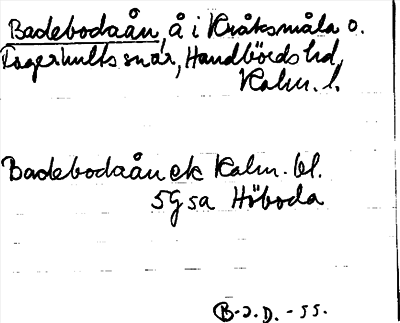 Badebodaån, å i Kråksmåla o.
Fagerhults snar, Handbörds hd,
Kalm. l.
Badebodaån ek Kalm. bl.
5G sa Höboda
B-J.D. -55.